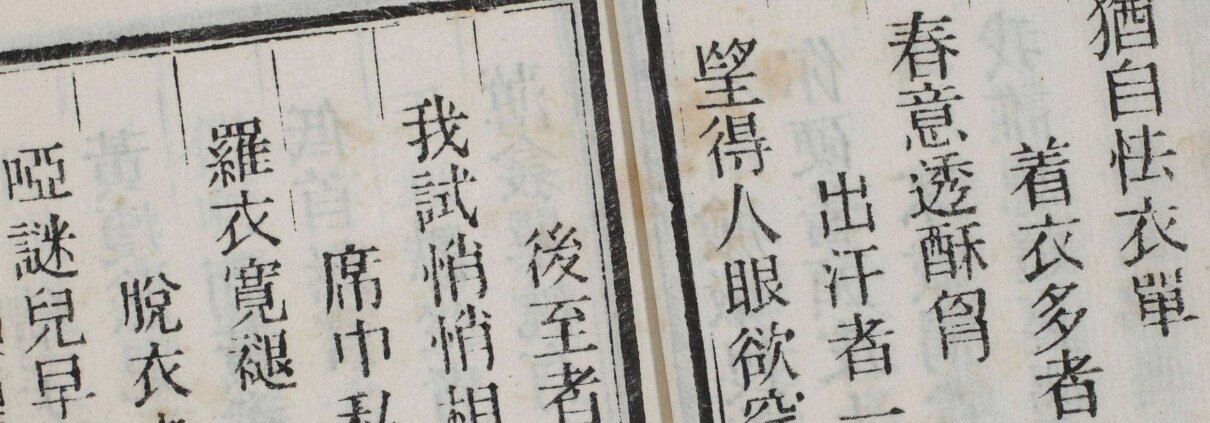 猶自怯衣單
着衣多者
春意透酥胷
出汗者一
望得人眼欲穿
後至者
我試悄悄相
席巾私
羅衣寬褪
脫衣
啞謎兒早